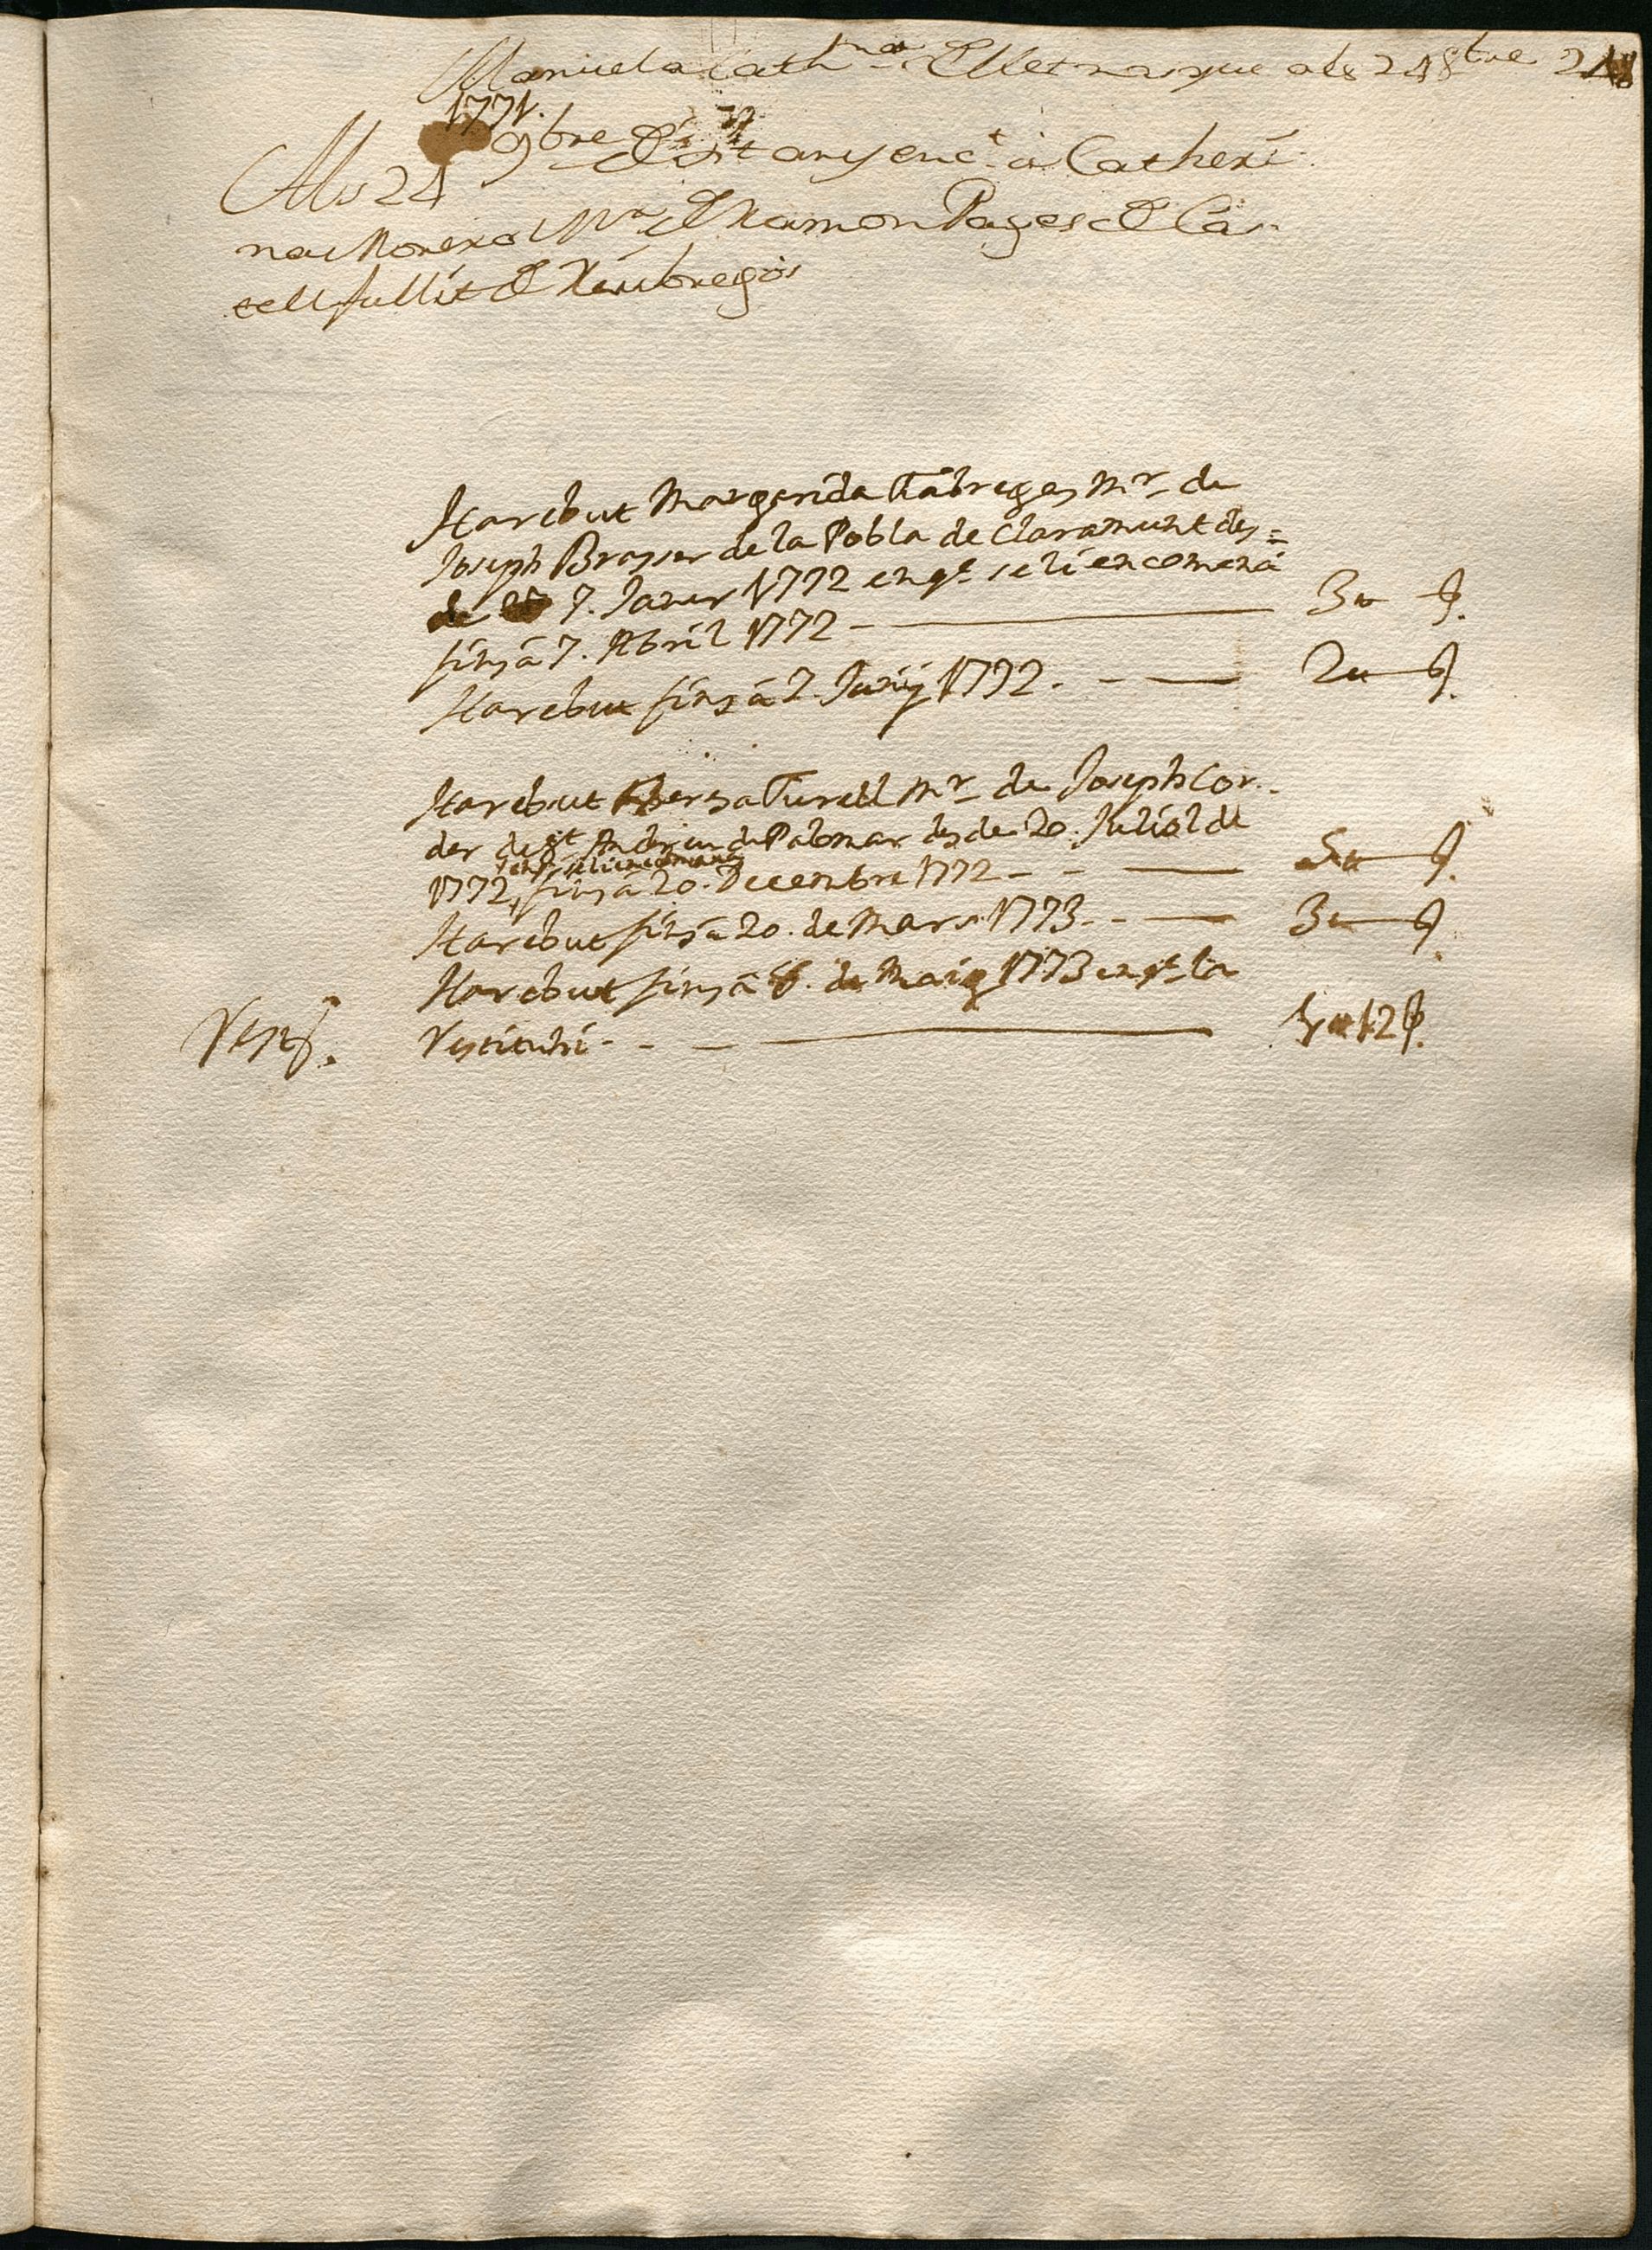 Manuela Cathna. de llet nasque als 24 8bre 248
1771.
Als 24 9bre Dit any enct. á Catheri
na Morera Mr. de Ramon Pages de Cas
tellfullit de Riubregòs
Ha rebut Margarida Fàbregas Mr. de
Joseph Brasser de la Pobla de Claramunt des=
de 7. Janer 1772 en qt. se li encomenà
fins á 7. Abril 1772 — 3 ₶ ß.
Ha rebut fins á 7. Juny 1772. - — 2 ₶ — ß.
Ha rebut Theresa Turell Mr. de Joseph Cor-
der de St. Andreu de Palomar desde 20. Juliol de
en qt. se li encomanà
1772, fins á 20. Decembre 1772 - - — 5 ₶ — ß.
Ha rebut fins á 20. de Mars 1773. - — 3 ₶ — ß.
Ha rebut fins á 6. de Maig 1773 en qt. la
Restt. restituhí - - — 1 ₶ 12 ß.